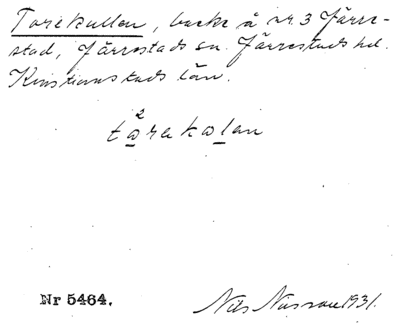 Torekullen, backe å nr 3 Järre-
stad, Järrestads sn. Järrestads hd.
Kristianstads län.
2
tårekolen
Nr 5464.
Nils Nilsson 1931.